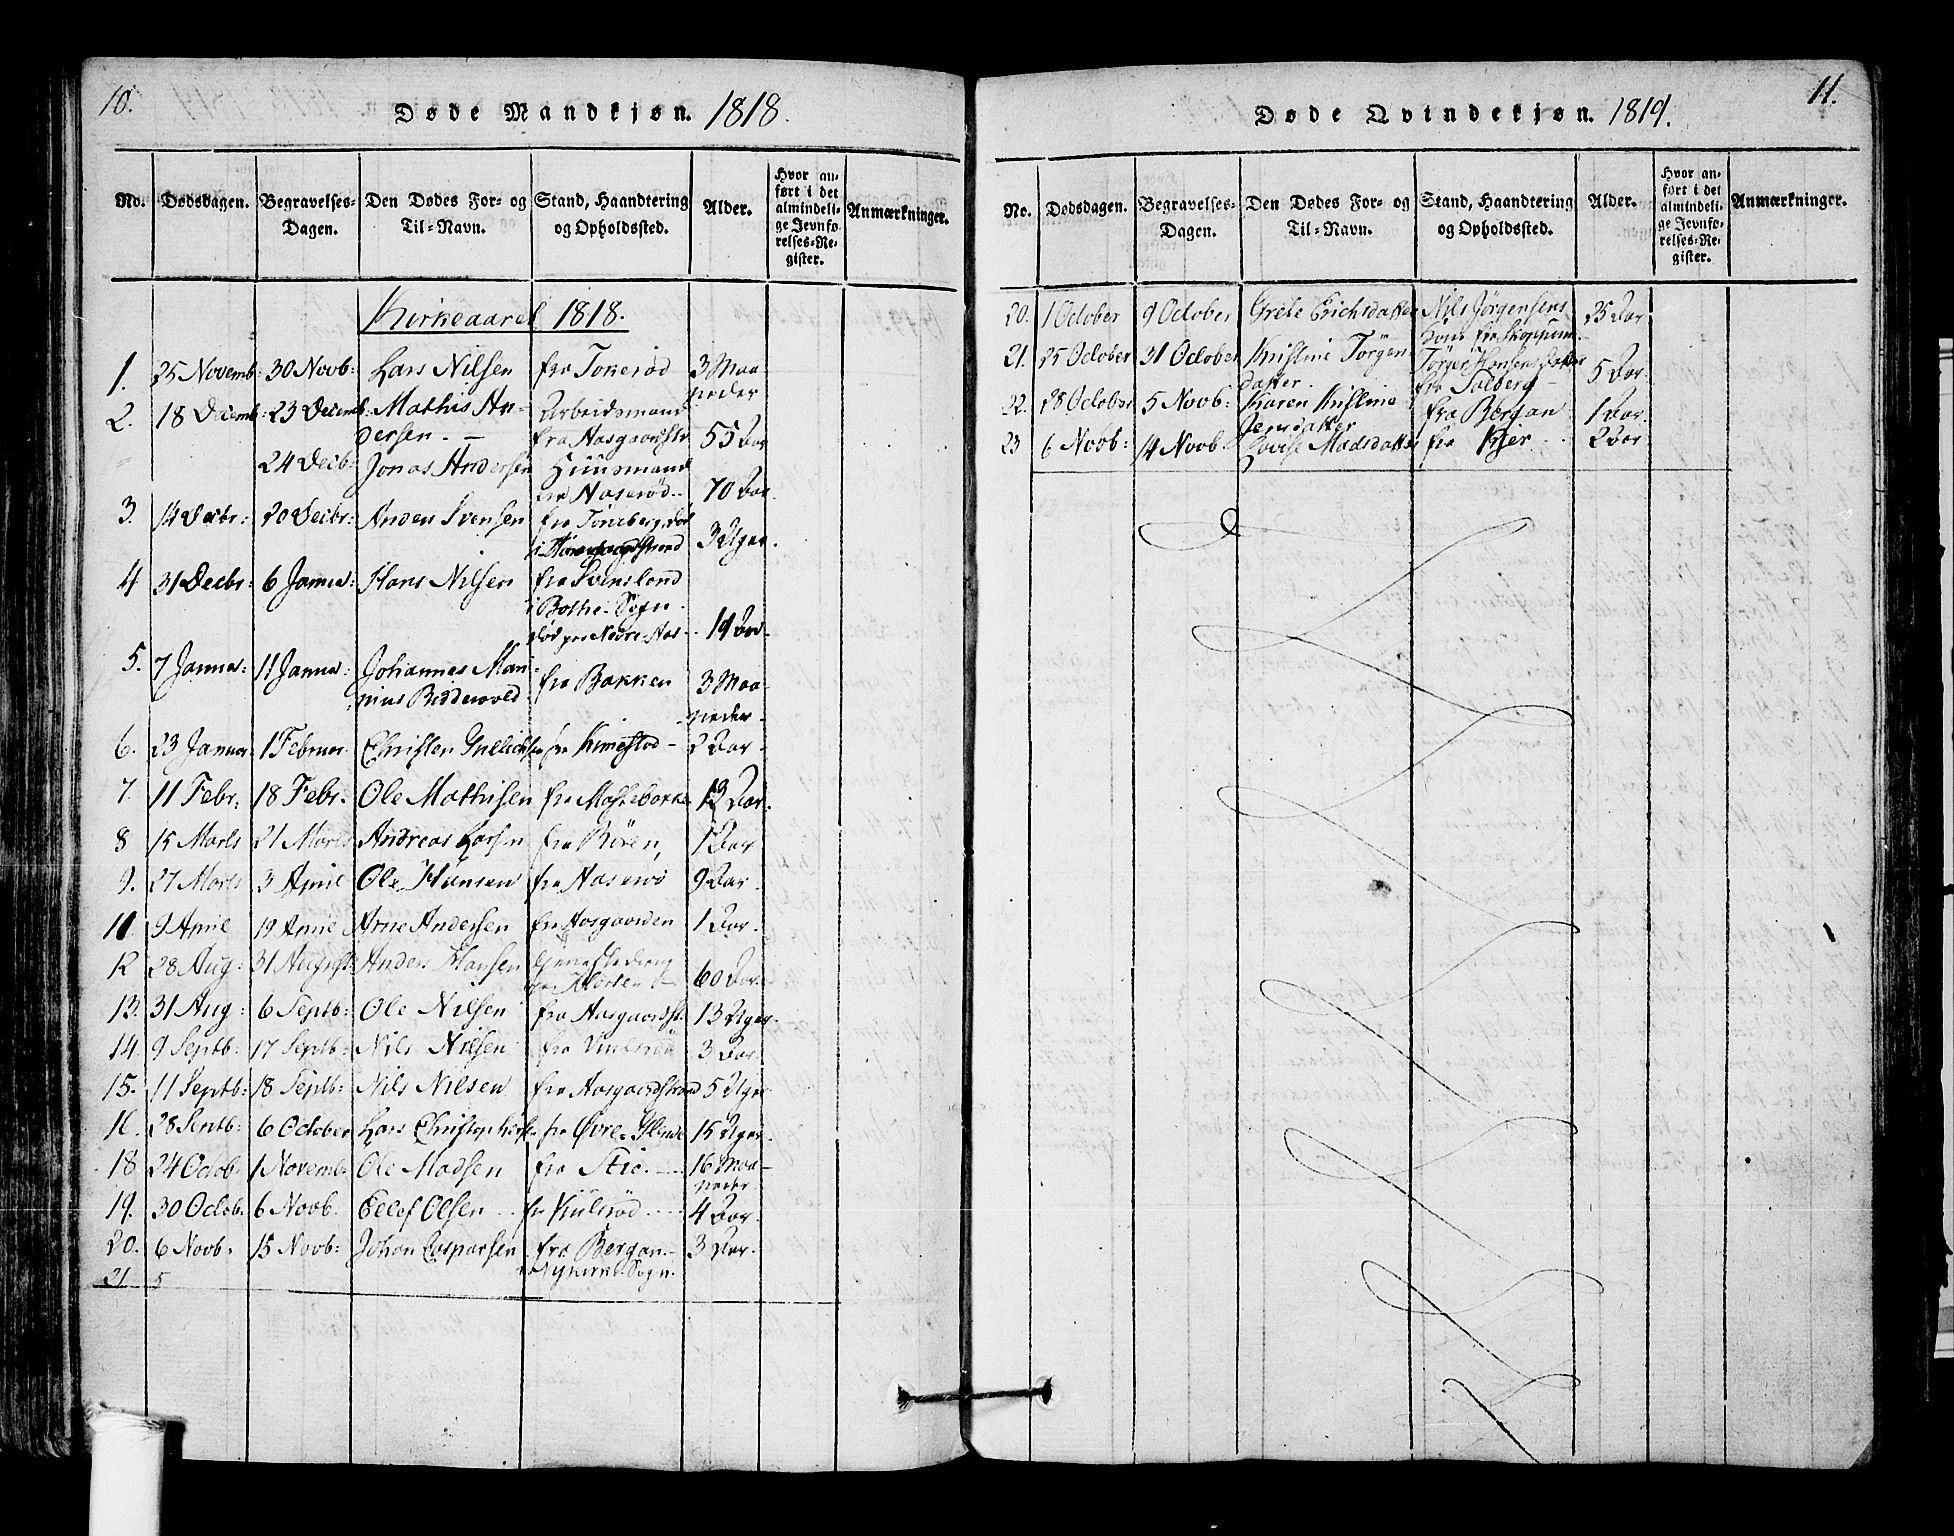 10.
Døde Mandkjøn. 1818.
No. Dødsdagen. Begravelses-Dagen. Den Dødes For- og Til-Navn. Stand, Haandtering og Opholdssted. Alder. Hvor anført i det almindelige Jevnførelses-Register. Anmærkninger.
Kirkeaaret 1818.
1. 25 Novemb: 30 Novb: Lars Nilsen fra Tokerød 3 Maa
neder
2. 18 Decemb: 23 Decemb: Mathis An- Arbeidsmand
dersen. — fra Aasgaardstr 55 Aar
24 Decb: Jonas Andersen Huusmand
Aaserød.. 70 Aar.
3. 14 Decbr: 20 Decbr: Anders Svensen fra Tønsberg, død
i 3 Uger.
4 31 Decbr: 6 Janua: Hans Nilsen fra Svensland
i Bothe-Sogn.
død paa Nedre-Aas- 19 Aar
5. 7 Janua: 11 Janua: Johannes Mari-
nius Beddevold. fra Bakken 3 Maa-
neder.
6. 23 Janua: 1 Februar. Christen fra 2 Aar.
7. 11 Febr. 18 Febr. Ole Mathisen fra 13 Aar.
8 15 Marts 21 Marts Andreas Larsen fra 1 Aar
9. 27 Marts 3 April Ole Hansen fra Aaserø 9 Aar.
11 9 April 19 April Arne Andersen fra Aasgaarden 1 Aar.
12 28 Aug: 31 August Anders Hansen
fra Horten 60 Aar.
13. 31 Aug: 6 Septb: Ole Nilsen fra Aasgaardst. 13 Uger
14. 9 Septb: 17 Septb: Nils Nilsen fra 3 Aar.
15. 11 Septb: 18 Septb: Nils Nilsen fra Aasgaardstrand 5 Uger
16. 28 Septb: 6 October Lars Christophersen fra Øvre- 15 Uger.
18 24 Octob. 1 Novemb: Ole Madsen fra Stie. 16 Maa-
neder
19. 30 Octob. 6 Novb. Ellef Olsen fra 4 Aar.
20. 6 Novb. 15 Novb: Johan Casparsen fra Bergan. 3 Aar.
Nykirke-Sogn.
21 5
11.
Døde Qvindekjøn. 1819.
No. Dødsdagen. Begravelses-Dagen. Den Dødes For- og Til-Navn. Stand, Haandtering og Opholdssted. Alder. Hvor anført i det almindelige Jevnførelses-Register. Anmærkninger.
20. 1 October 9 October Grete Erichsdatter Nils Jørgensens 25 Aar
Kone fra Skoppum
21. 25 October 31 October Kristine Jørgen- Jørgen Hansens Datter
datter. fra Solberg 5 Aar.
22. 28 October 5 Novb: Karen Kristine fra Bergan 1 Aar.
Jensdatter
23 6 Novb: 14 Novb. Lovise Madsdatter fra Kjær 2 Aar